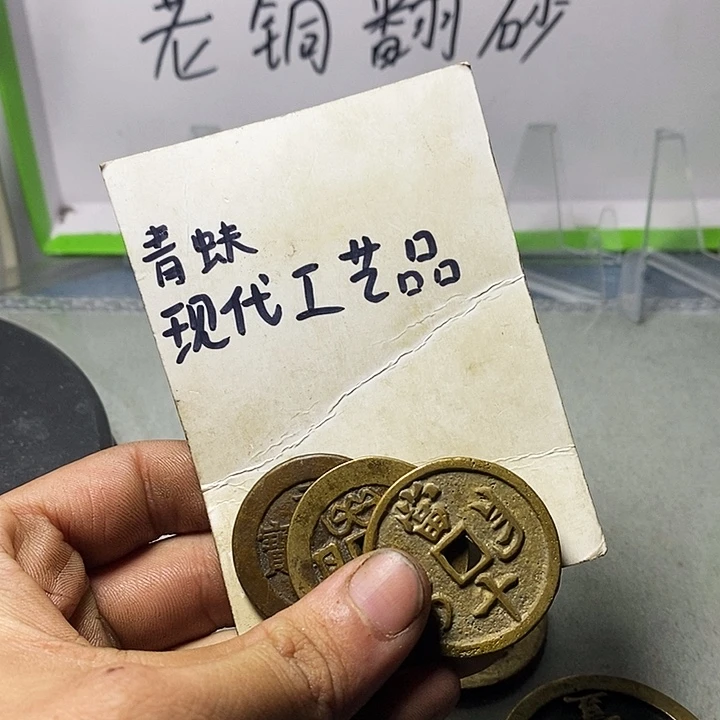 老铜翻砂
青蚨
现代工艺品
當
十